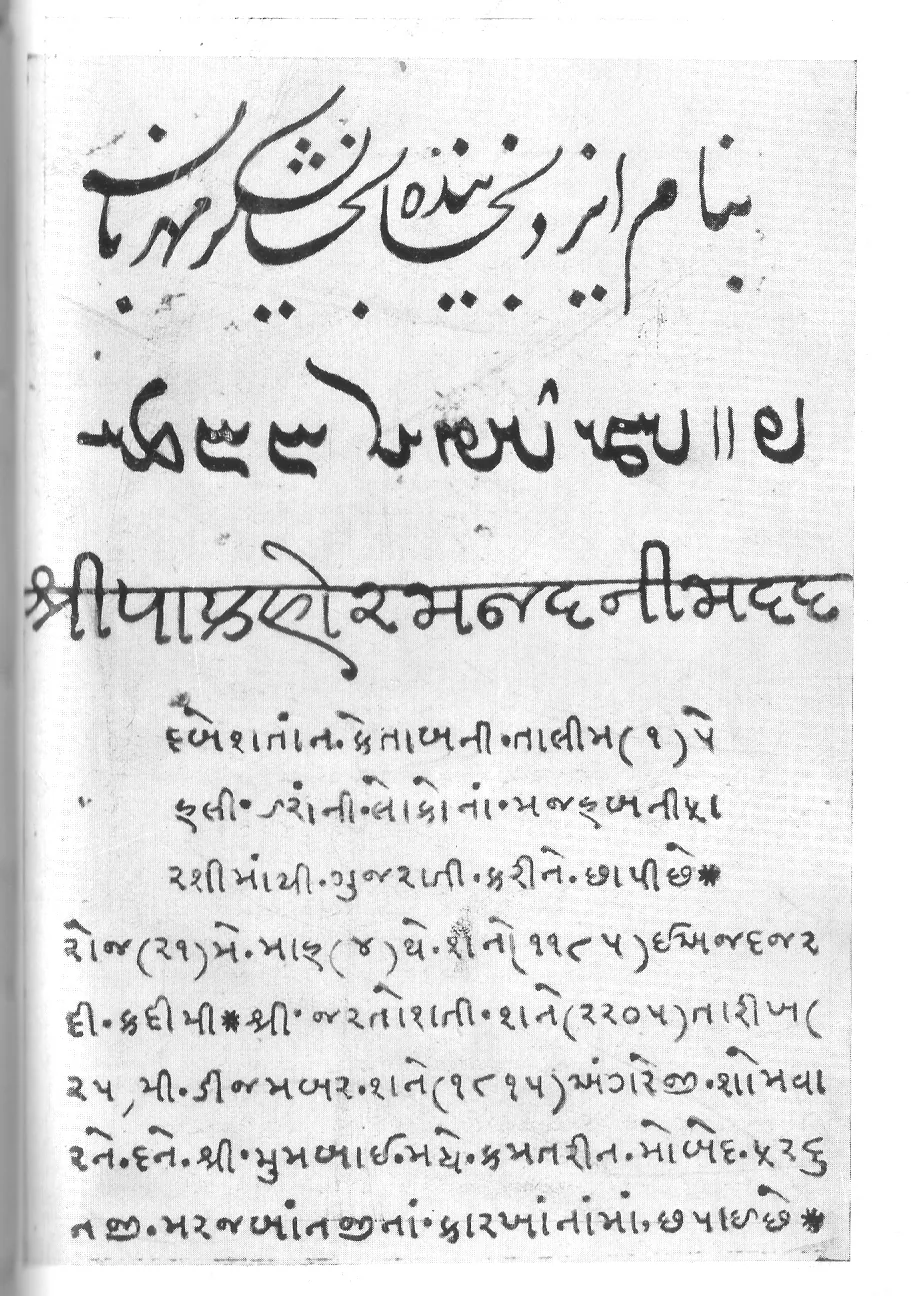 بنام ایزد بخشاینده بخشایشگر مهربان
શ્રી પાક હોરમજદની મદદ
દબેશતાંન·કેતાબની·તાલીમ(૧)પે
હલી·ઈરાંની·લોકોનાં·મજહબનીફા
રશીમાંથી·ગુજરાતી·કરીને·છાપીછે*
રોજ(૨૧)મે·માહ(૪)થે·શને(૧૧૮૫)ઈઅજદજર
દી·કદીમી*શ્રી·જરતોશતી·શને(૨૨૦૫)તારીખ(
૨૫,મી·ડીજમબર·શને(૧૮૧૫)અંગરેજી·શોમવા
રને·દને·શ્રી·મુમબાઈ·મધે·કમતરીન·મોબેદ·ફરદુ
નજી·મરજબાંનજીનાં·કારખાંનાંમાં·છપાઈછે*